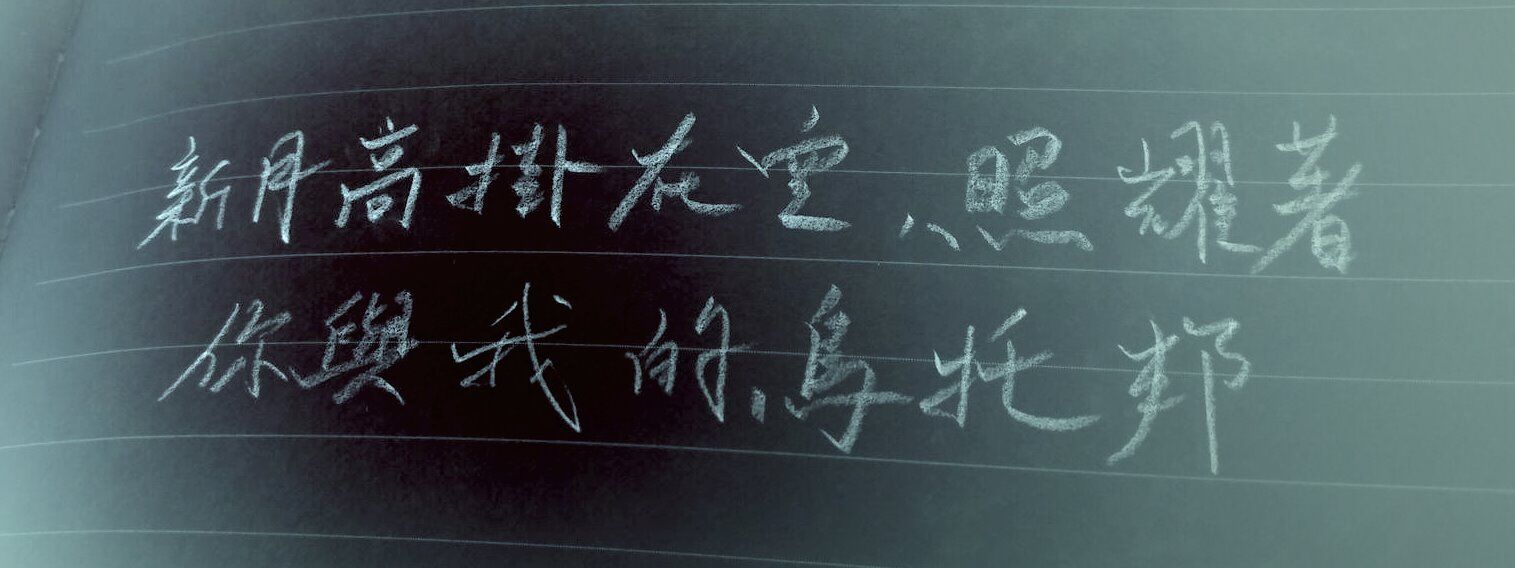 新月高掛在空、照耀著
你與我的、烏托邦